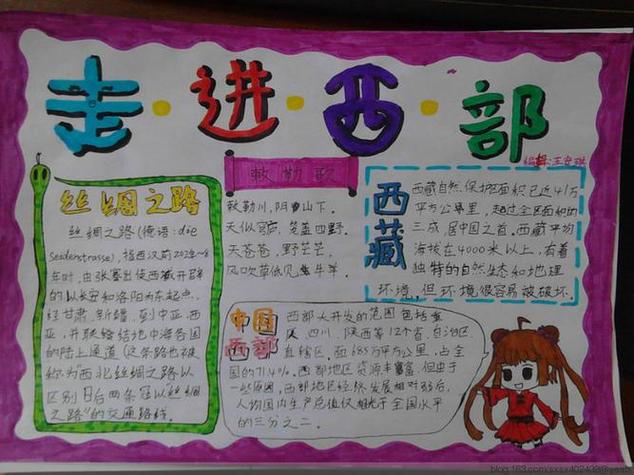 走·进·西·部
编辑:王安琪
丝绸之路
丝绸之路(德语:die
Seidenstrasse),指西汉前202年-8
年时,由张骞出使西域开辟
的以长安和洛阳为东起点,
经甘肃、新疆,到中亚、西
亚,并联络结地中海各国
的陆上通道(这条路也被
称为"西北丝绸之路以
区别日后两条冠以丝绸
之路"的交通路线.
敕勒歌
敕勒川,阴山下.
天似穹庐,笼盖四野.
天苍苍,野茫茫,
风吹草低见牛羊.
西藏
西藏自然保护区面积已近41万
平方公里,超过全区面积的
三成,居中国之首.西藏平均
海拔在4000米以上,有着
独特的自然生态和地理
环境,但环境很容易被破坏.
中国
西部
西部大开发的范围包括重
庆、四川、陕西等12个省、自治区、
直辖区.面685万平方公里,占全
国的71.4%.西部地区资源丰富,但由于
一些原因,西部地区经济发展相对弱后,
人均国内生产总值仅相当于全国水平
的三分之二.